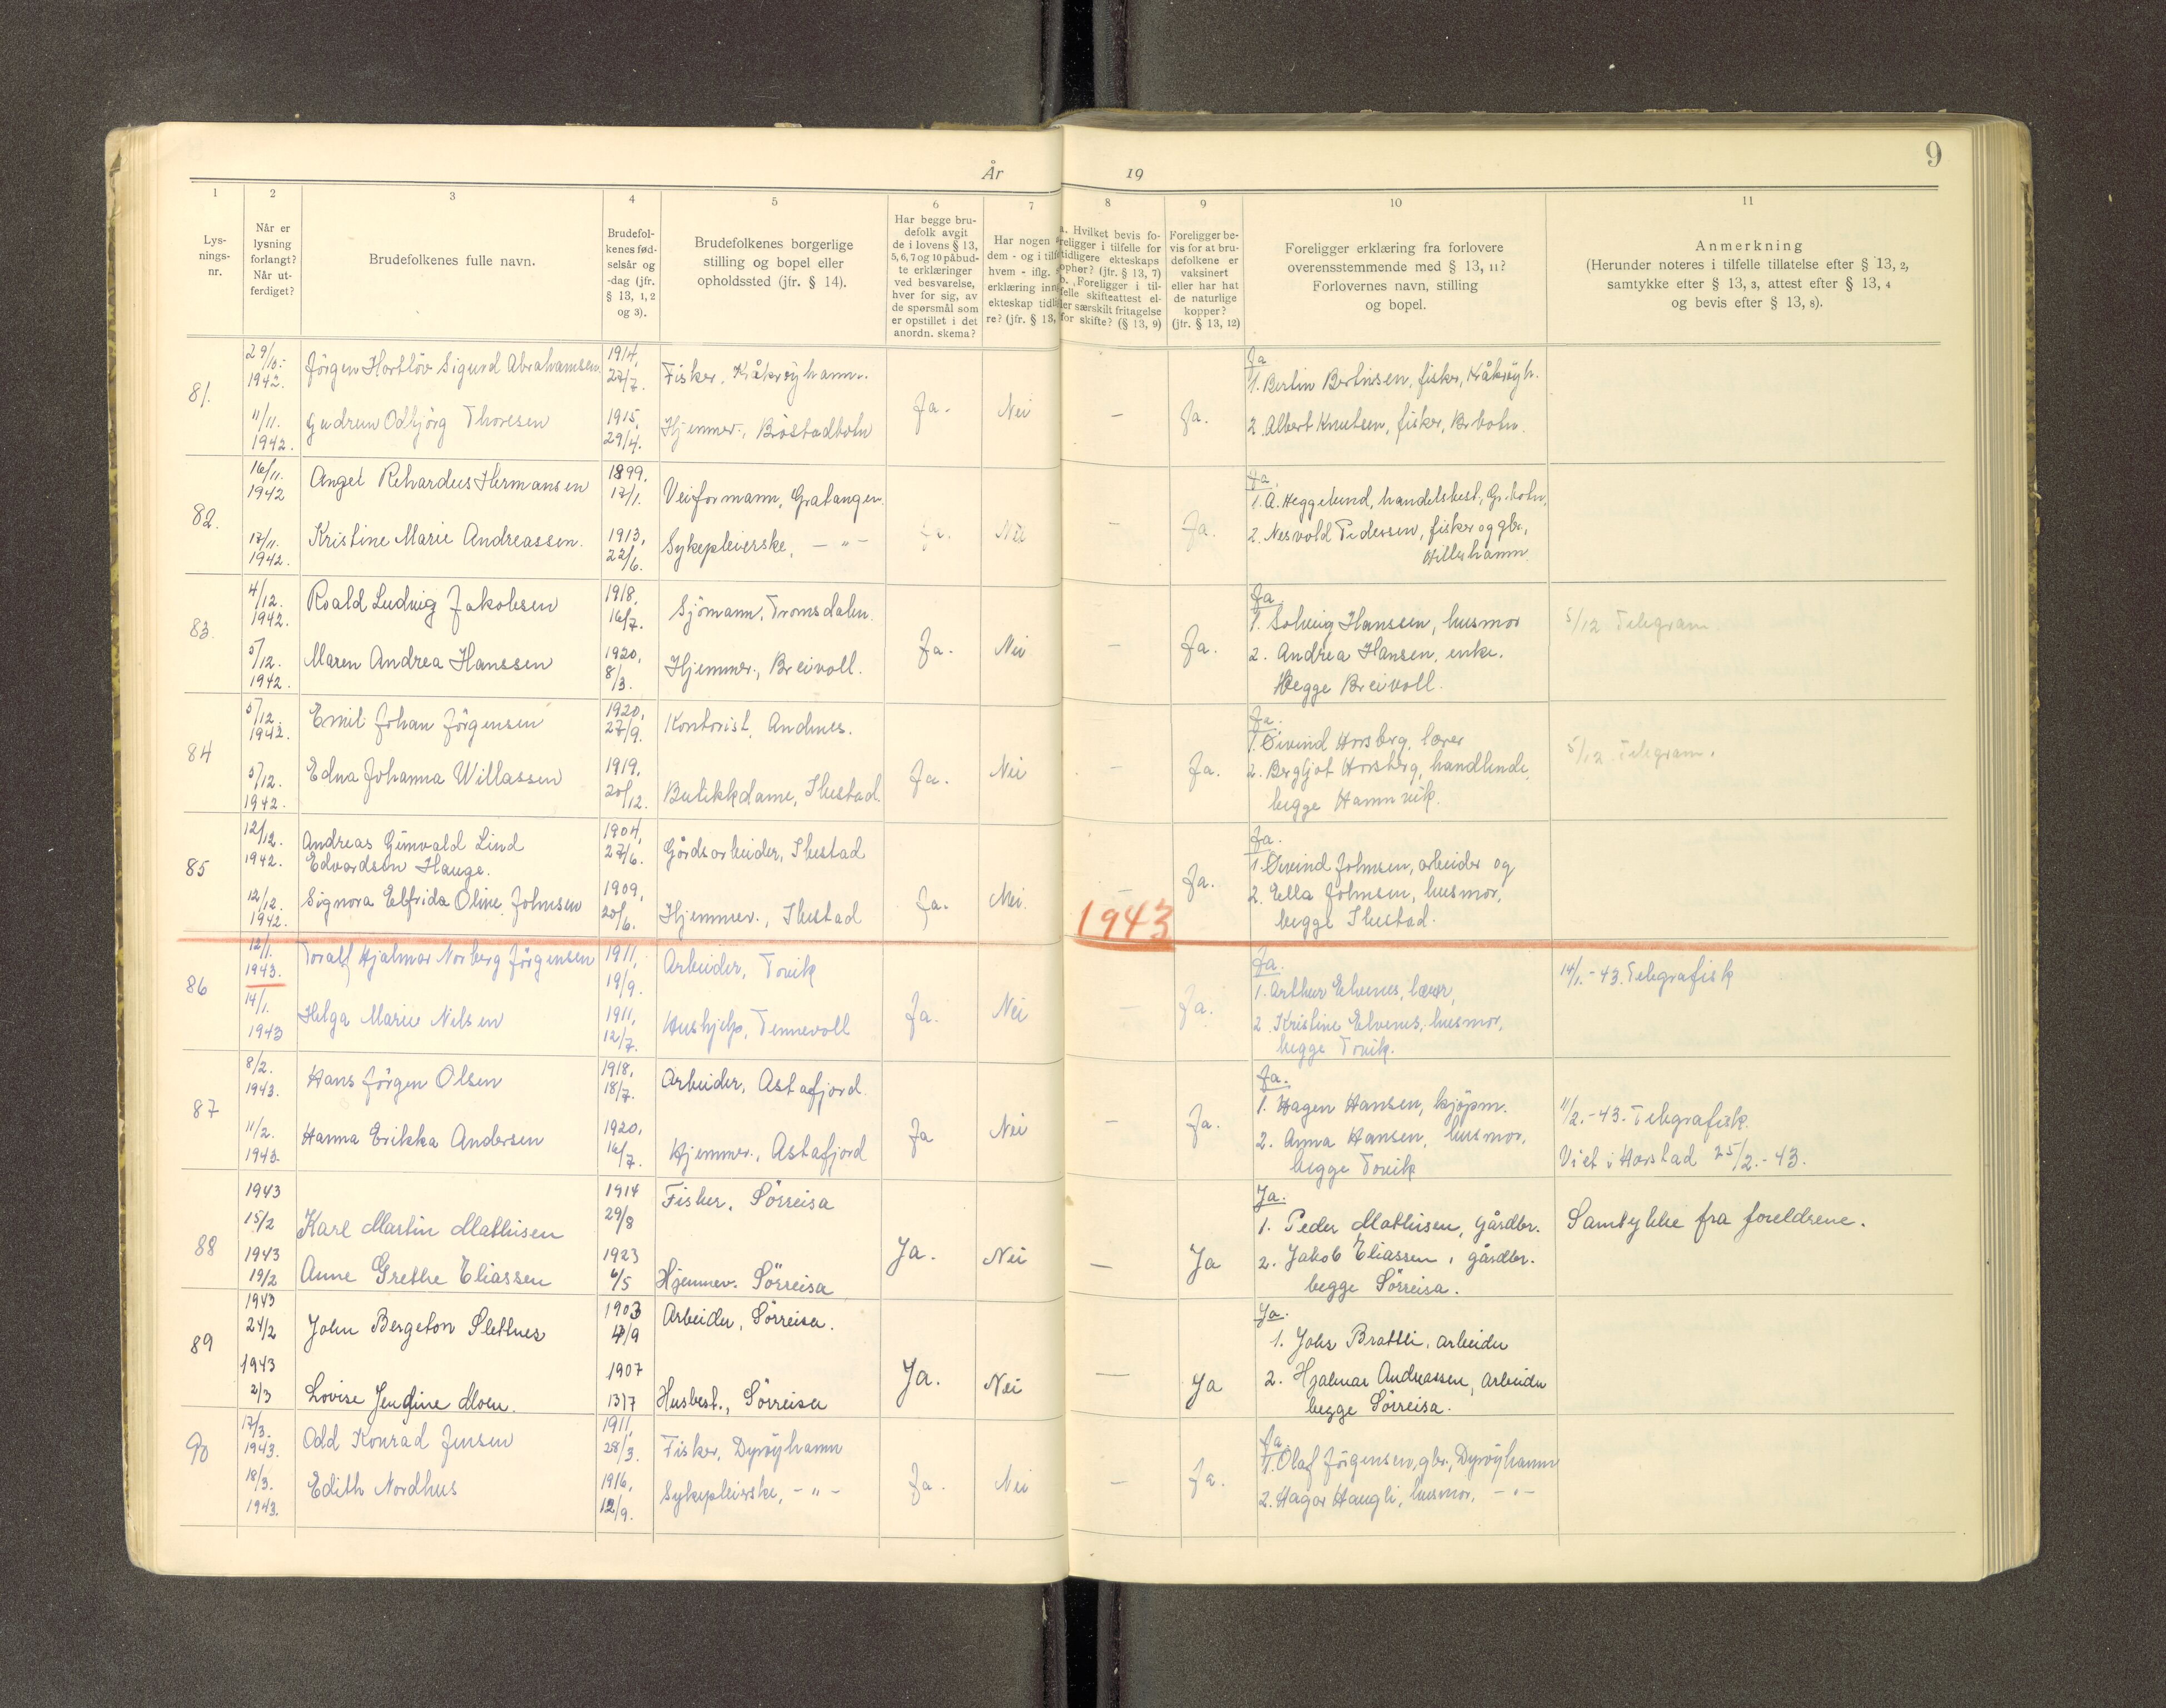 År 19
9
1 2 3 4 5 6 7 8 9 10 11
Lys-
nings-
nr.
Når er
lysning
forlangt?
Når ut-
ferdiget?
Brudefolkenes fulle navn.
Brudefol-
kenes fød-
selsår og
-dag (jfr.
§ 13, 1, 2
og 3).
Brudefolkenes borgerlige
stilling og bopel eller
opholdssted (jfr. § 14).
Har begge bru-
defolk avgit
de i lovens § 13,
5, 6, 7 og 10 påbud-
te erklæringer
ved besvarelse,
hver for sig, av
de spørsmål som
er opstillet i det
anordn. skema?
Har nogen
dem - og i tilf
hvem - iflg.
erklæring inn
ekteskap tidl
re? (jfr. § 13,
a. Hvilket bevis fo-
religger i tilfelle for
tidligere ekteskaps
ophør? (jfr. § 13, 7)
b. Foreligger i til-
felle skifteattest el-
ler særskilt fritagelse
for skifte? (§ 13, 9)
Foreligger be-
vis for at bru-
defolkene er
vaksinert
eller har hat
de naturlige
kopper?
(jfr. § 13, 12)
Foreligger erklæring fra forlovere
overensstemmende med § 13, 11?
Forlovernes navn, stilling
og bopel.
Anmerkning
(Herunder noteres i tilfelle tillatelse efter § 13, 2,
samtykke efter § 13, 3, attest efter § 13, 4
og bevis efter § 13, 8).
81.
29/10.-
1942.
Jörgen Sigurd Abrahamsen
1914,
27/7.
Fisker,
11/11.
1942.
Gudrun Odbjörg Thoresen
1915,
29/4.
Hjemmev., Bröstadbotn
Ja.
Nei
—
Ja.
Ja
1. Bertin Bertinsen, fisker,
2. Albert Knutsen, fisker, Br.botn.
82.
16/11.
1942
Angel Rikardus Hermansen
1899,
17/1.
Veiformann, Gratangen.
17/11.
1942.
Kristine Marie Andreassen.
1913,
22/6.
Sykepleierske, — " —
Ja.
Nei
—
Ja.
Ja.
1. A. Heggelund, handelsbest., Gr.botn,
2. Nesvold Pedersen, fisker og gbr.,
83.
4/12.
1942.
Roald Ludvig Jakobsen
1918,
16/7.
Sjömann, Tromsdalen.
5/12.
1942.
Maren Andrea Hanssen
1920,
8/3.
Hjemmev., Breivoll.
Ja.
Nei
—
Ja.
Ja
1. Solveig Hanssen, husmor
2. Andrea Hansen, enke.
Begge Breivoll.
5/12 Telegram.
84
5/12.
1942.
Emil Johan Jörgensen
1920,
27/9.
Kontorist, Andenes.
5/12.
1942.
Edna Johanna Willassen
1919,
20/12.
Butikkdame, Ibestad.
Ja.
Nei
—
Ja.
Ja.
1. Öivind Horsberg, lærer
2. Bergljot Horsberg, handlende,
begge Hamnvik.
5/12 Telegram.
85
12/12.
1942.
Andreas Gunvald Lind
Edvardsen Hauge.
1904,
27/6.
Gårdsarbeider, Ibestad
12/12.
1942.
Signora Elfrida Oline Johnsen
1909,
20/6.
Hjemmev., Ibestad
Ja.
Nei.
—
Ja.
Ja.
1. Öivind Johnsen, arbeider og
2. Ella Johnsen, husmor,
begge Ibestad.
1943
86
12/1.
1943.
Toralf Hjalmar Norberg Jörgensen
1911,
19/9.
Arbeider, Tovik
14/1.
1943
Helga Marie Nilsen
1911,
12/7.
Hushjelp, Tennevoll
Ja.
Nei
—
Ja.
Ja.
1. Arthur Elvenes, lærer,
2. Kristine Elvenes, husmor,
begge Tovik.
14/1.-43. Telegrafisk
87
8/2.
1943.
Hans Jörgen Olsen
1918,
18/7.
Arbeider, Astafjord
11/2.
1943.
Hanna Erikka Andersen
1920,
16/7.
Hjemmev., Astafjord
Ja
Nei
—
Ja.
Ja.
1. Hagen Hansen, kjöpm.
2. Anna Hansen, husmor,
begge Tovik
11/2.-43. Telegrafisk.
Viet i Harstad 25/2.-43.
88
1943
15/2
Karl Martin Mathisen
1914
29/8
Fisker, Sörreisa
1943
19/2
Anne Grethe Eliassen
1923
6/5
Hjemmev. Sörreisa
Ja.
Nei
—
Ja
Ja.
1. Peder Mathisen, gårdbr.
2. Jakob Eliassen, gårdbr.
begge Sörreisa.
Samtykke fra foreldrene.
89
1943
24/2
John Bergeton Slettnes
1903
4/9
Arbeider, Sörreisa.
1943
2/3
Lovise Jensine Moen.
1907
13/7
Husbest., Sörreisa
Ja.
Nei
—
Ja
Ja.
1. Johs Brattli, arbeider
2. Hjalmar Andreassen, arbeider
begge Sörreisa.
90
17/3.
1943.
Odd Konrad Jensen
1911,
28/3.
Fisker, Dyröyhamn
18/3.
1943.
Edith Nordhus
1916,
12/9.
Sykepleierske, - " -
Ja.
Nei
—
Ja.
Ja.
1. Olaf Jörgensen, gbr., Dyröyhamn
2. Hagar Haugli, husmor, - " -